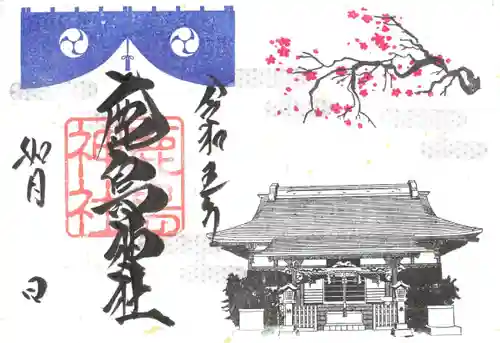 令和五年
鹿島神社
鹿島
神社
如月 日